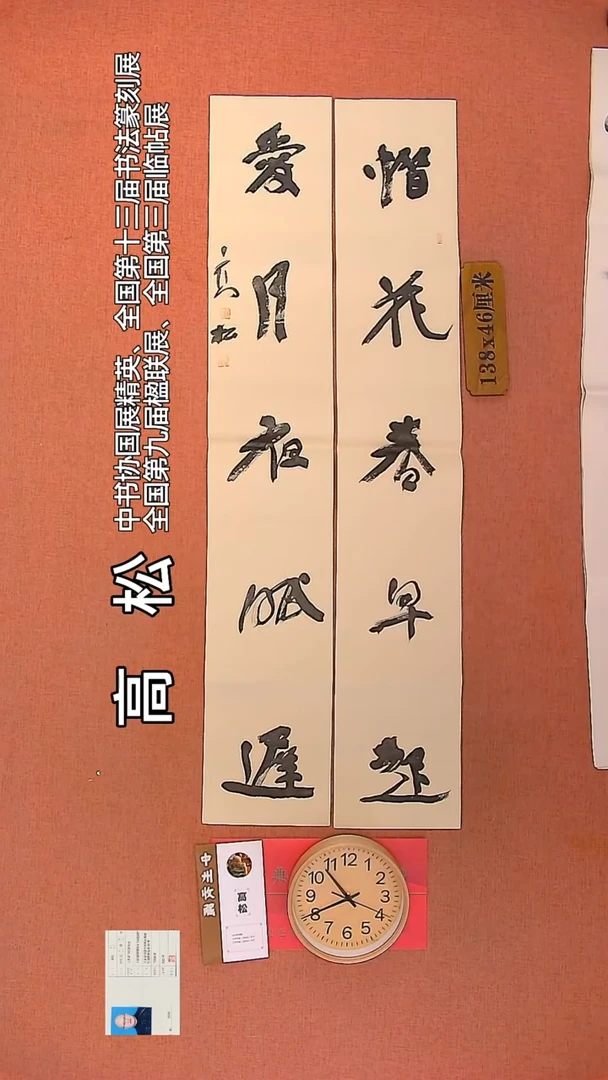 惜花春早起
愛月夜眠遲
高松
138x46厘米
高 松
中书协国展精英、全国第十三届书法篆刻展
全国第九届楹联展、全国第三届临帖展
高松
12
1
2
3
4
5
6
7
8
9
10
11